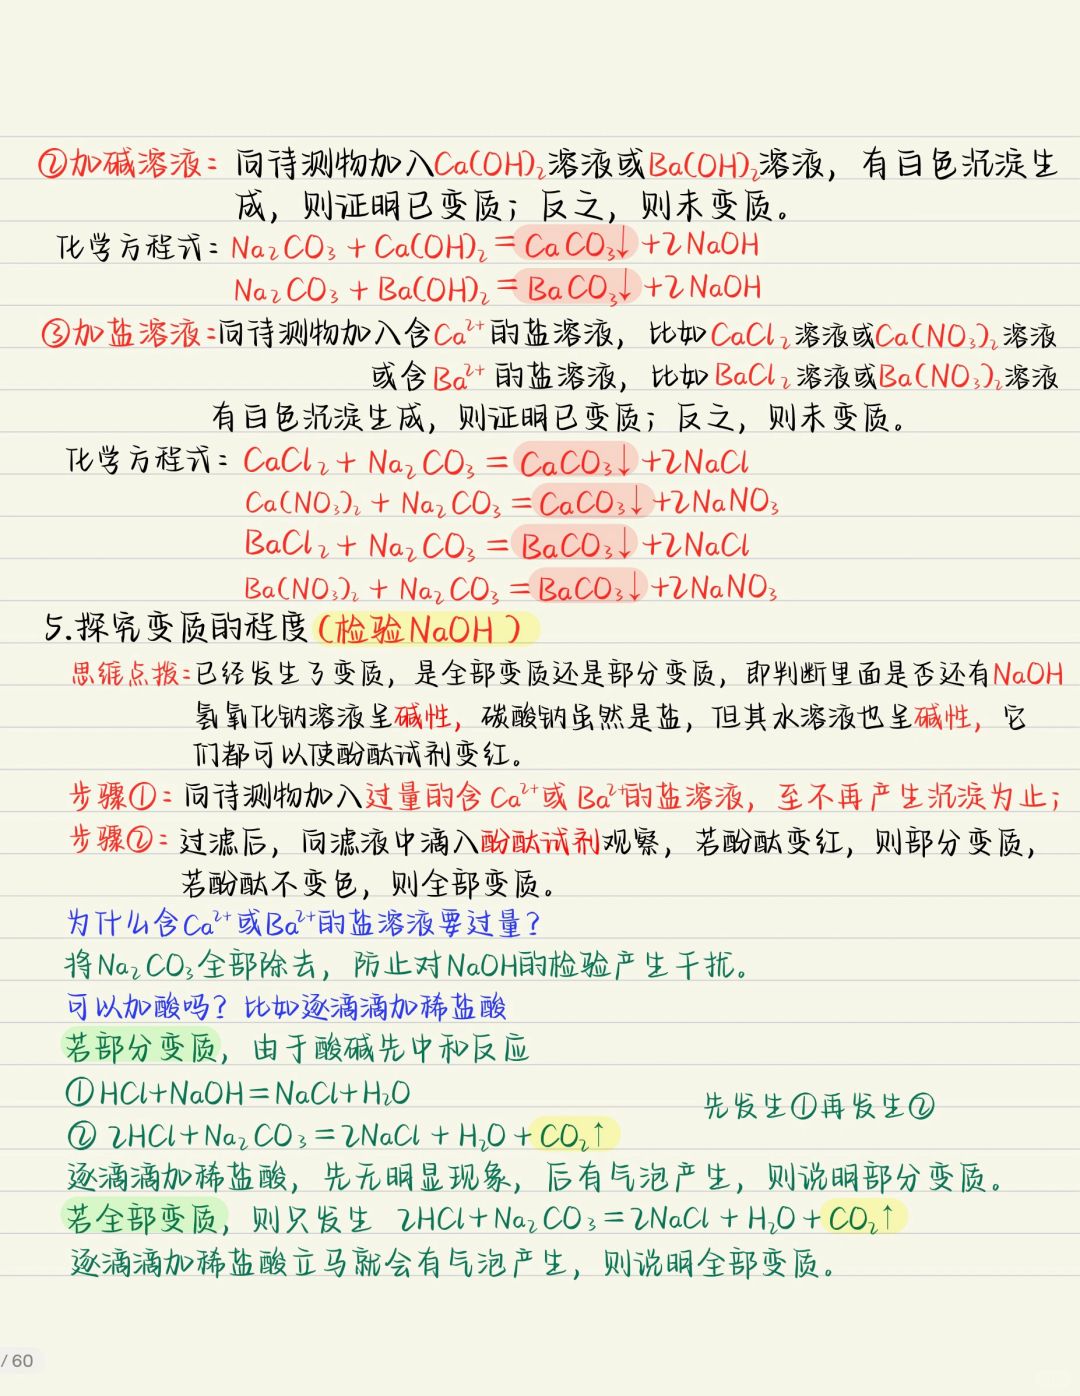 ②加碱溶液：向待测物加入Ca(OH)₂溶液或Ba(OH)₂溶液，有白色沉淀生
成，则证明已变质；反之，则未变质。
化学方程式：Na₂CO₃+Ca(OH)₂=CaCO₃↓+2NaOH
Na₂CO₃+Ba(OH)₂=BaCO₃↓+2NaOH
③加盐溶液：向待测物加入含Ca²⁺的盐溶液，比如CaCl₂溶液或Ca(NO₃)₂溶液
或含Ba²⁺的盐溶液，比如BaCl₂溶液或Ba(NO₃)₂溶液
有白色沉淀生成，则证明已变质；反之，则未变质。
化学方程式：CaCl₂+Na₂CO₃=CaCO₃↓+2NaCl
Ca(NO₃)₂+Na₂CO₃=CaCO₃↓+2NaNO₃
BaCl₂+Na₂CO₃=BaCO₃↓+2NaCl
Ba(NO₃)₂+Na₂CO₃=BaCO₃↓+2NaNO₃
5.探究变质的程度(检验NaOH)
思维点拨：已经发生了变质，是全部变质还是部分变质，即判断里面是否还有NaOH
氢氧化钠溶液呈碱性，碳酸钠虽然是盐，但其水溶液也呈碱性，它
们都可以使酚酞试剂变红。
步骤①：向待测物加入过量的含Ca²⁺或Ba²⁺的盐溶液，至不再产生沉淀为止；
步骤②：过滤后，向滤液中滴入酚酞试剂观察，若酚酞变红，则部分变质，
若酚酞不变色，则全部变质。
为什么含Ca²⁺或Ba²⁺的盐溶液要过量？
将Na₂CO₃全部除去，防止对NaOH的检验产生干扰。
可以加酸吗？比如逐滴滴加稀盐酸
若部分变质，由于酸碱先中和反应
①HCl+NaOH=NaCl+H₂O
先发生①再发生②
②2HCl+Na₂CO₃=2NaCl+H₂O+CO₂↑
逐滴滴加稀盐酸，先无明显现象，后有气泡产生，则说明部分变质。
若全部变质，则只发生 2HCl+Na₂CO₃=2NaCl+H₂O+CO₂↑
逐滴滴加稀盐酸立马就会有气泡产生，则说明全部变质。
/60